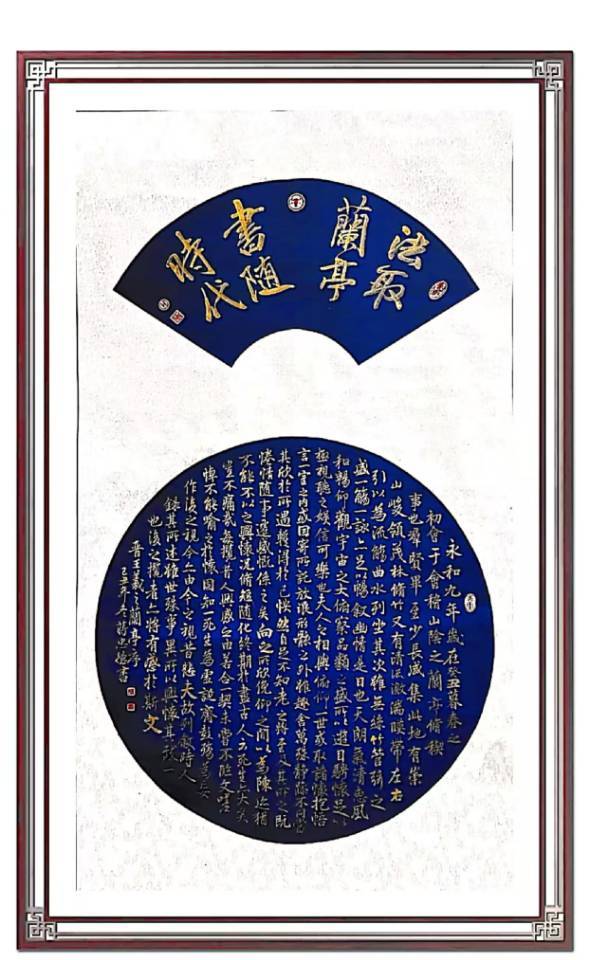 法取
蘭亭
書随
時代
永和九年歲在癸丑暮春之
初會于會稽山陰之蘭亭脩稧
事也羣賢畢至少長咸集此地有崇
山峻領茂林脩竹又有清流激湍暎帶左右
引以為流觴曲水列坐其次雖無絲竹管弦之
盛一觴一詠亦足以暢叙幽情是日也天朗氣清惠風
和暢仰觀宇宙之大俯察品類之盛所以遊目騁懷足以
極視聽之娛信可樂也夫人之相與俯仰一世或取諸懷抱悟
言一室之內或因寄所託放浪形骸之外雖趣舍萬殊靜躁不同當
其欣於所遇暫得於己怏然自足不知老之將至及其所之既
惓情隨事遷感慨係之矣向之所欣俛仰之間以為陳迹猶
不能不以之興懷況脩短隨化終期於盡古人云死生亦大矣
豈不痛哉每攬昔人興感之由若合一契未嘗不臨文嗟
悼不能喻之於懷固知一死生為虛誕齊彭殤為妄
作後之視今亦由今之視昔悲夫故列敘時人
錄其所述雖世殊事異所以興懷其致一
也後之攬者亦將有感於斯文
晉王羲之蘭亭序
書